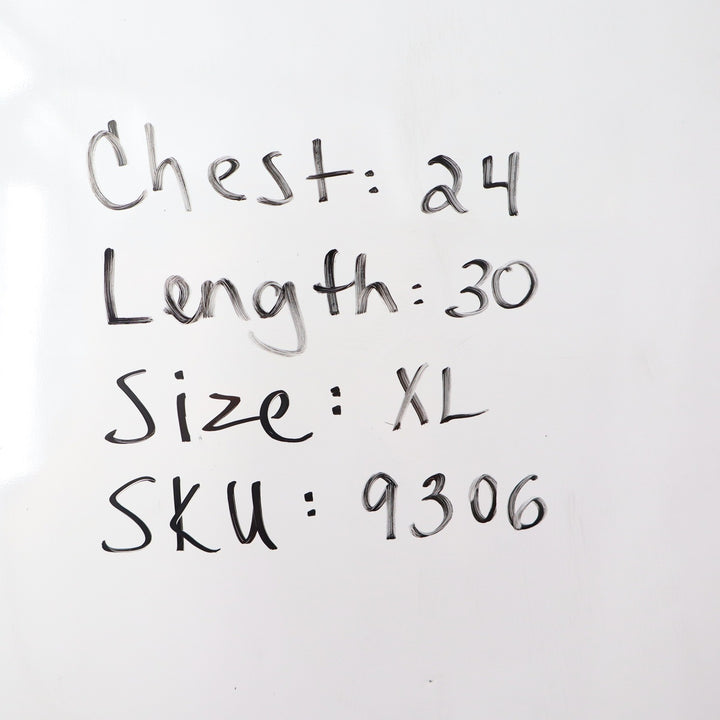 Chest: 24
Length: 30
Size: XL
SKU: 9306